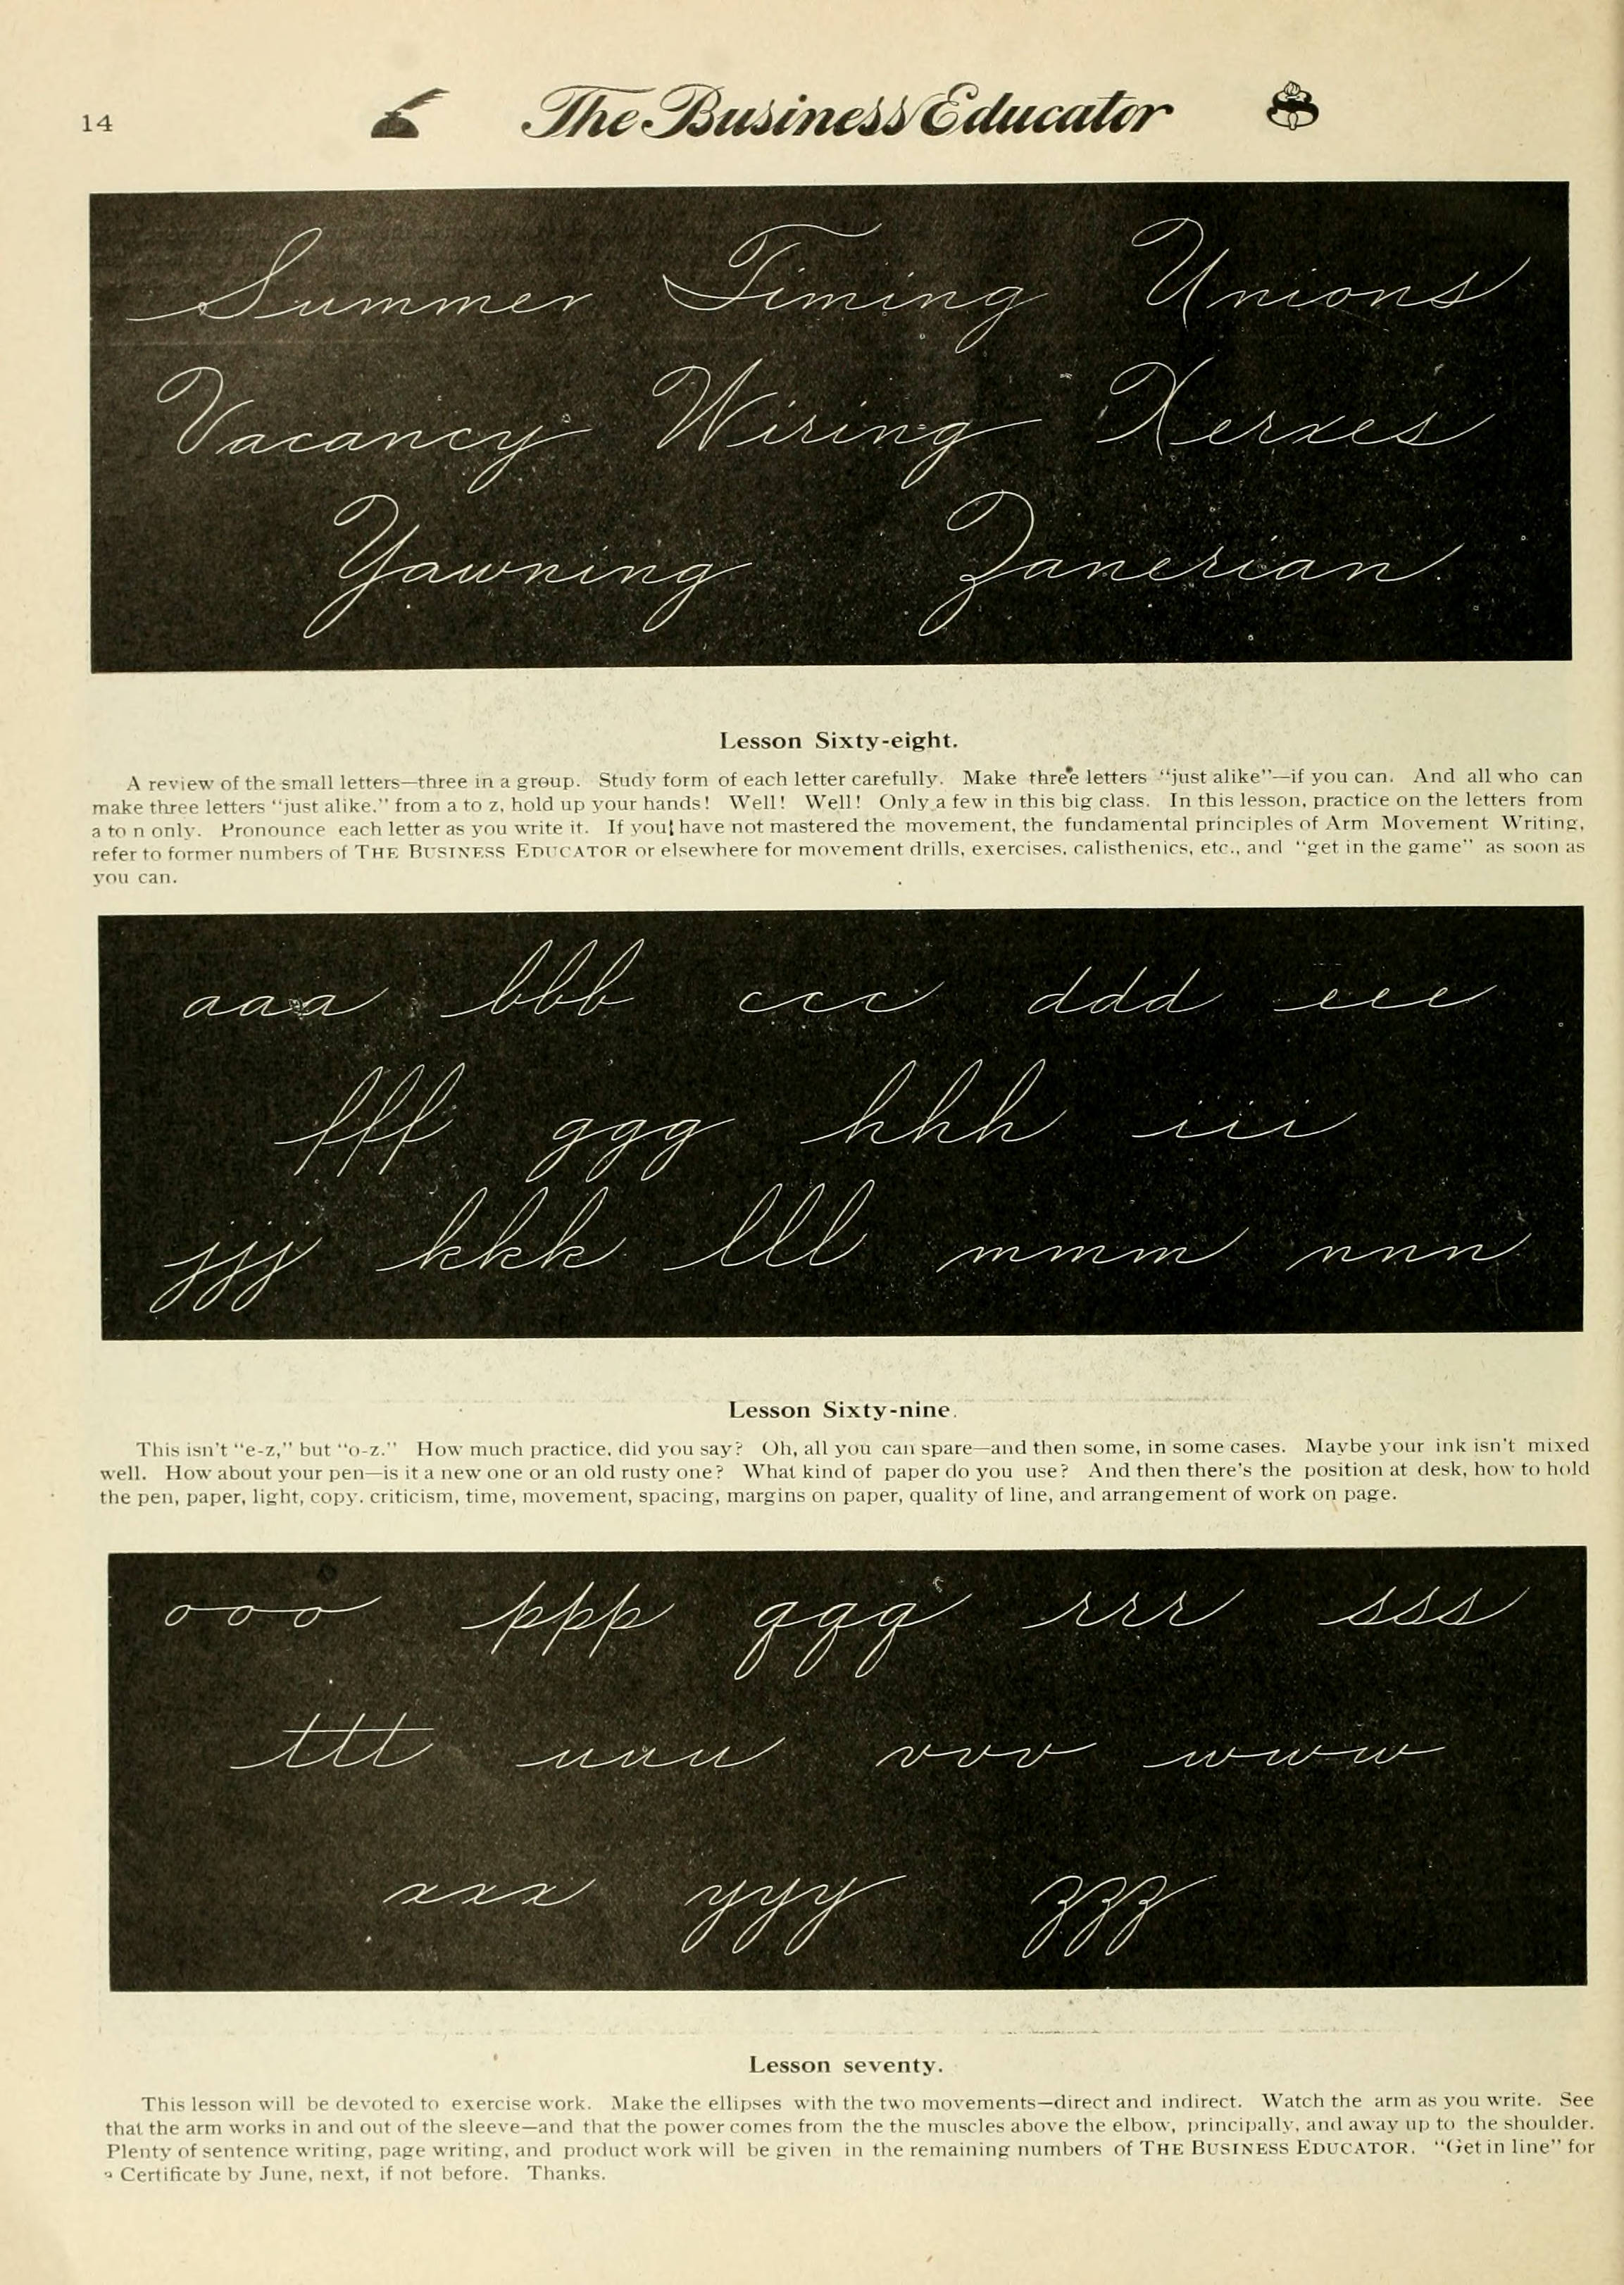 14
The Business Educator
Summer Timing Unions
Vacancy Wiring Xerxes
Yawning Zanerian.
Lesson Sixty-eight.
A review of the small letters—three in a group. Study form of each letter carefully. Make three letters "just alike"—if you can. And all who can
make three letters "just alike." from a to z, hold up your hands! Well! Well! Only a few in this big class. In this lesson, practice on the letters from
a to n only. Pronounce each letter as you write it. If you have not mastered the movement, the fundamental principles of Arm Movement Writing,
refer to former numbers of THE BUSINESS EDUCATOR or elsewhere for movement drills, exercises, calisthenics, etc., and "get in the game" as soon as
you can.
aaa bbb ccc ddd eee
fff ggg hhh iii
jjj kkk lll mmm nnn
Lesson Sixty-nine.
This isn't "e-z," but "o-z." How much practice, did you say? Oh, all you can spare—and then some, in some cases. Maybe your ink isn't mixed
well. How about your pen—is it a new one or an old rusty one? What kind of paper do you use? And then there's the position at desk, how to hold
the pen, paper, light, copy. criticism, time, movement, spacing, margins on paper, quality of line, and arrangement of work on page.
ooo ppp qqq rrr sss
ttt uuu vvv www
xxx yyy zzz
Lesson seventy.
This lesson will be devoted to exercise work. Make the ellipses with the two movements—direct and indirect. Watch the arm as you write. See
that the arm works in and out of the sleeve—and that the power comes from the the muscles above the elbow, principally, and away up to the shoulder.
Plenty of sentence writing, page writing, and product work will be given in the remaining numbers of THE BUSINESS EDUCATOR. "Get in line" for
a Certificate by June, next, if not before. Thanks.